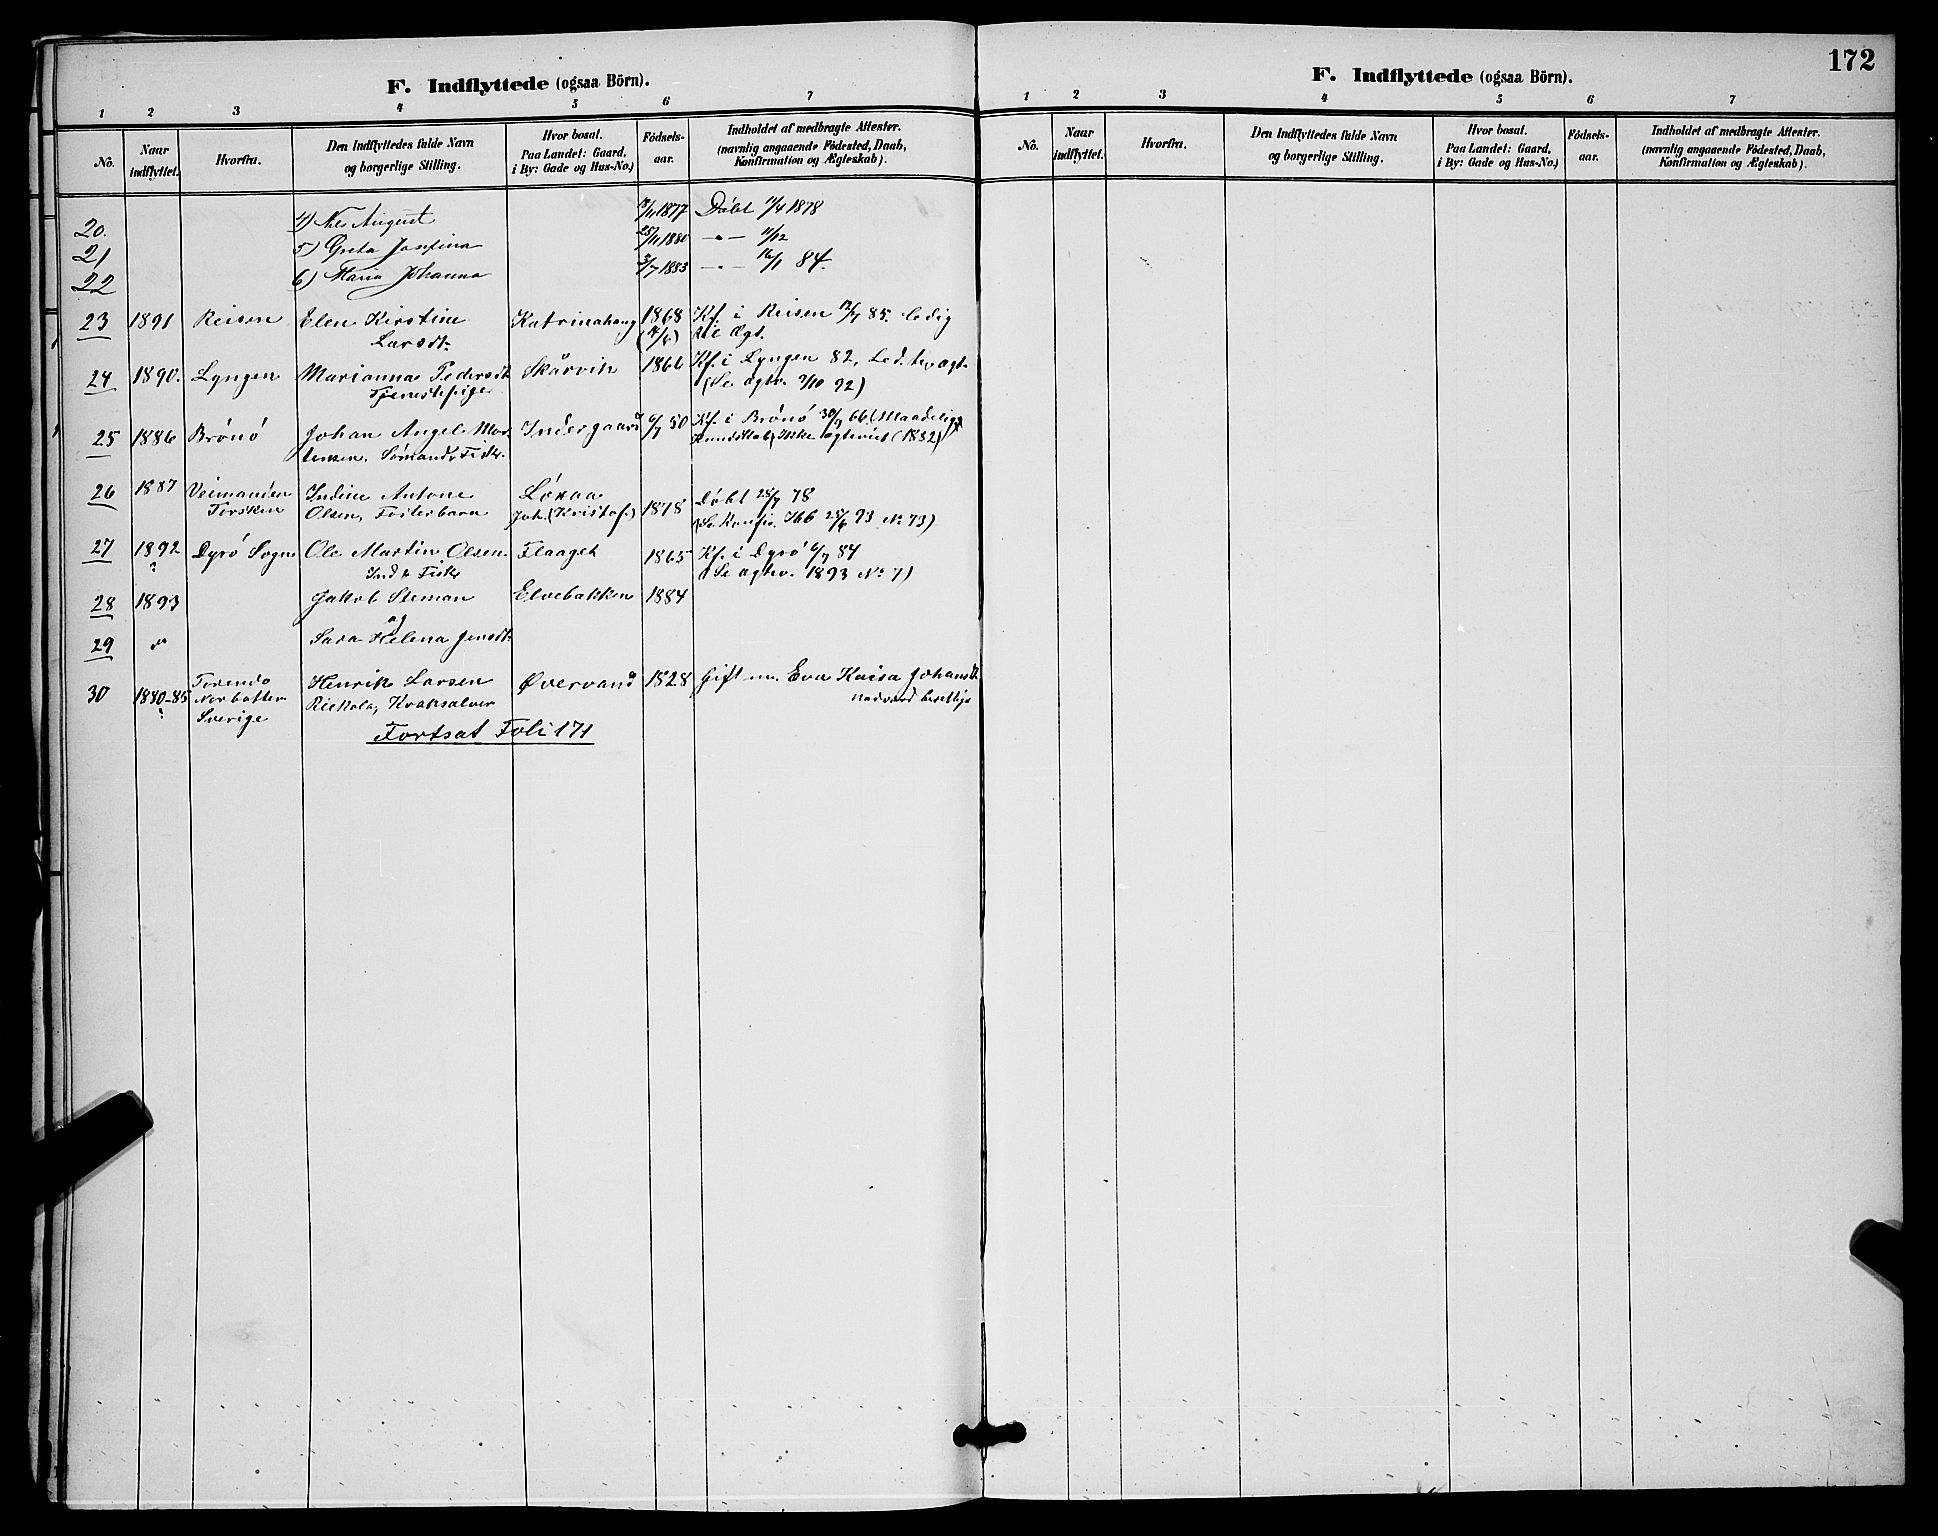 172
F. Indflyttede (ogsaa Börn).
1 2 3 4 5 6 7
No. Naar indflyttet. Hvorfra. Den Indflyttedes fulde Navn og borgerlige Stilling. Hvor bosat. Paa Landet: Gaard, i By: Gade og Hus-No.) Födsels-aar. Indholdet af medbragte Attester. (navnlig angaaende Födested, Daab, Konfirmation og Ægteskab).
20. 4) Nils August 1877 Döbt 7/4 1878
21 5) Greta Josefina 25/11 1880 —"— 11/12
22 6) Maria Johanna 3/7 1883 —"— 16/1 84.
23 1891 Reisen Elen Kirstine Katrinahaug 1868 Kf. i Reisen 12/7 85. ledig
Larsdt.
24 1890. Lyngen Marianna Pedersdt Skårvik 1866 Kf. i Lyngen 82, Led. t. ægt.
Tjenestepige (Se ægtv. 2/10 92)
25 1886 Brönö Johan Angel Mor- Indergaard 6/7 50 Kf. i Brönö 30/9 66 (Maadelig
tensen. Sömand, Fisker. Kundskab) Ikke ægteviet (1832)
26 1887 Veimanden Indine Antone Löxaa 1878 Döbt 28/7 78
Torsken Olsen, Fosterbarn Joh. (Kristof.) (Se Konfir. 766 25/6 93 No 73)
27 1892 Dyrö Sogn Ole Martin Olsen Flaaget 1865 Kf. i Dyrö 6/7 84
Ind & Fisker (Se ægtev. 1893 No 7)
28 1893 Jakob Steman Elvebakken 1884
29 " Sara Helena Jensdt.
30 1880-85 Torendo Henrik Larsen Övervand 1828 Gift m. Eva Kaisa Johansdt.
Norbotten Riekola, Kvaksalver
Sverige
Fortsat Foli 171
F. Indflyttede (ogsaa Börn).
1 2 3 4 5 6 7
No. Naar indflyttet. Hvorfra. Den Indflyttedes fulde Navn og borgerlige Stilling. Hvor bosat. Paa Landet: Gaard, i By: Gade og Hus-No.) Födsels-aar. Indholdet af medbragte Attester. (navnlig angaaende Födested, Daab, Konfirmation og Ægteskab).